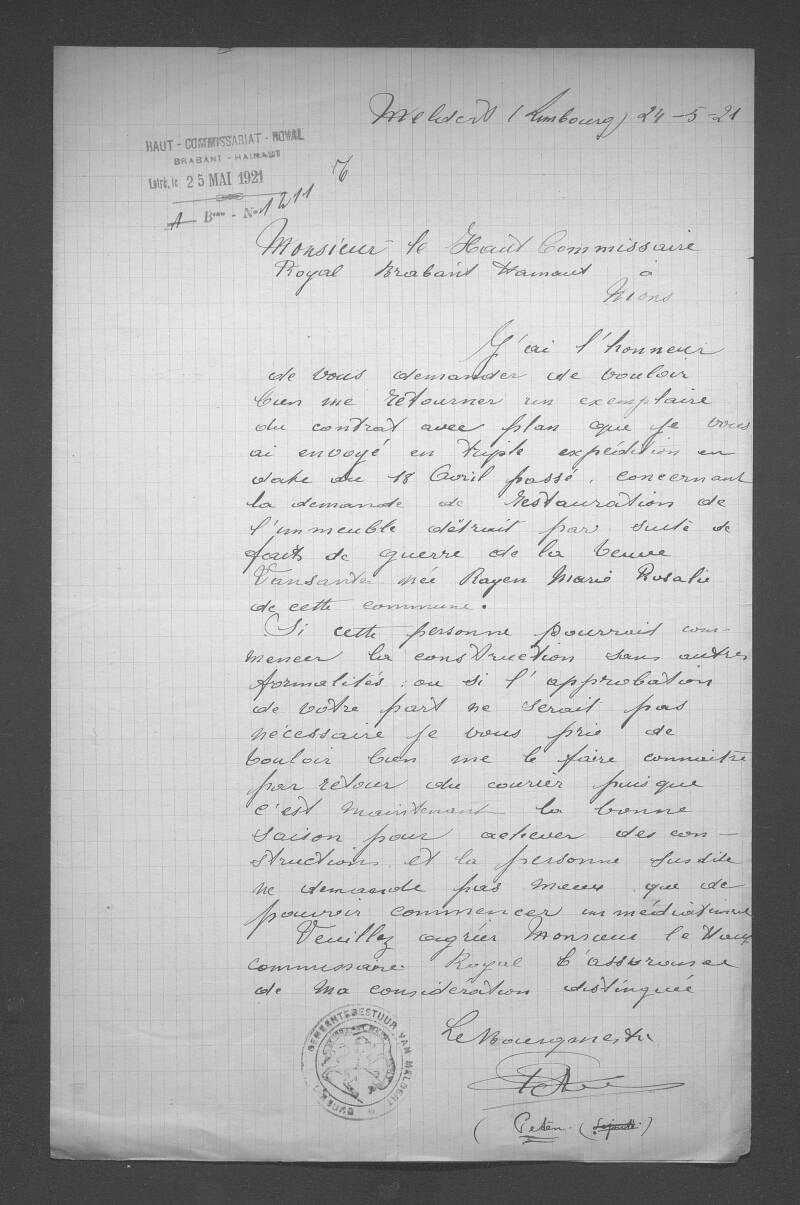 Meldert (Limbourg) 24-5-21
HAUT-COMMISSARIAT-ROYAL
BRABANT-HAINAUT
Entré, le 25 MAI 1921
A - B - N° 1211
Monsieur le Haut Commissaire
Royal Brabant Hainaut à
Mons
J'ai l'honneur
de vous demander de vouloir
bien me retourner un exemplaire
du contrat avec plan que je vous
ai envoyé en triple expédition en
date du 18 Avril passé, concernant
la demande de restauration de
l'immeuble détruit par suite de
faits de guerre de la veuve
Vansanter née Rayen Marie Rosalie
de cette commune.
Si cette personne pourrait com-
mencer la construction sans autres
formalités ou si l'approbation
de votre part ne serait pas
nécessaire je vous prie de
vouloir bien me le faire connaitre
par retour du courier puisque
c'est maintenant la bonne
saison pour achever des con-
structions et la personne susdite
ne demande pas mieux que de
pouvoir commencer immédiatement
Veuillez agréer Monsieur le Haut
commissaire Royal l'assurance
de ma considération distinguée
Le Bourgmestre
(Peten. ( )
GEMEENTEBESTUUR VAN MELDERT